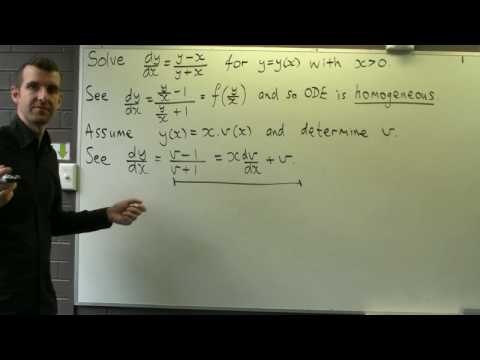 Solve dy/dx = y-x/y+x for y=y(x) with x>0.
See dy/dx = y/x -1 / y/x +1 = f(y/x) and so ODE is homogeneous
Assume y(x) = x.v(x) and determine v.
See dy/dx = v-1/v+1 = x dv/dx + v.